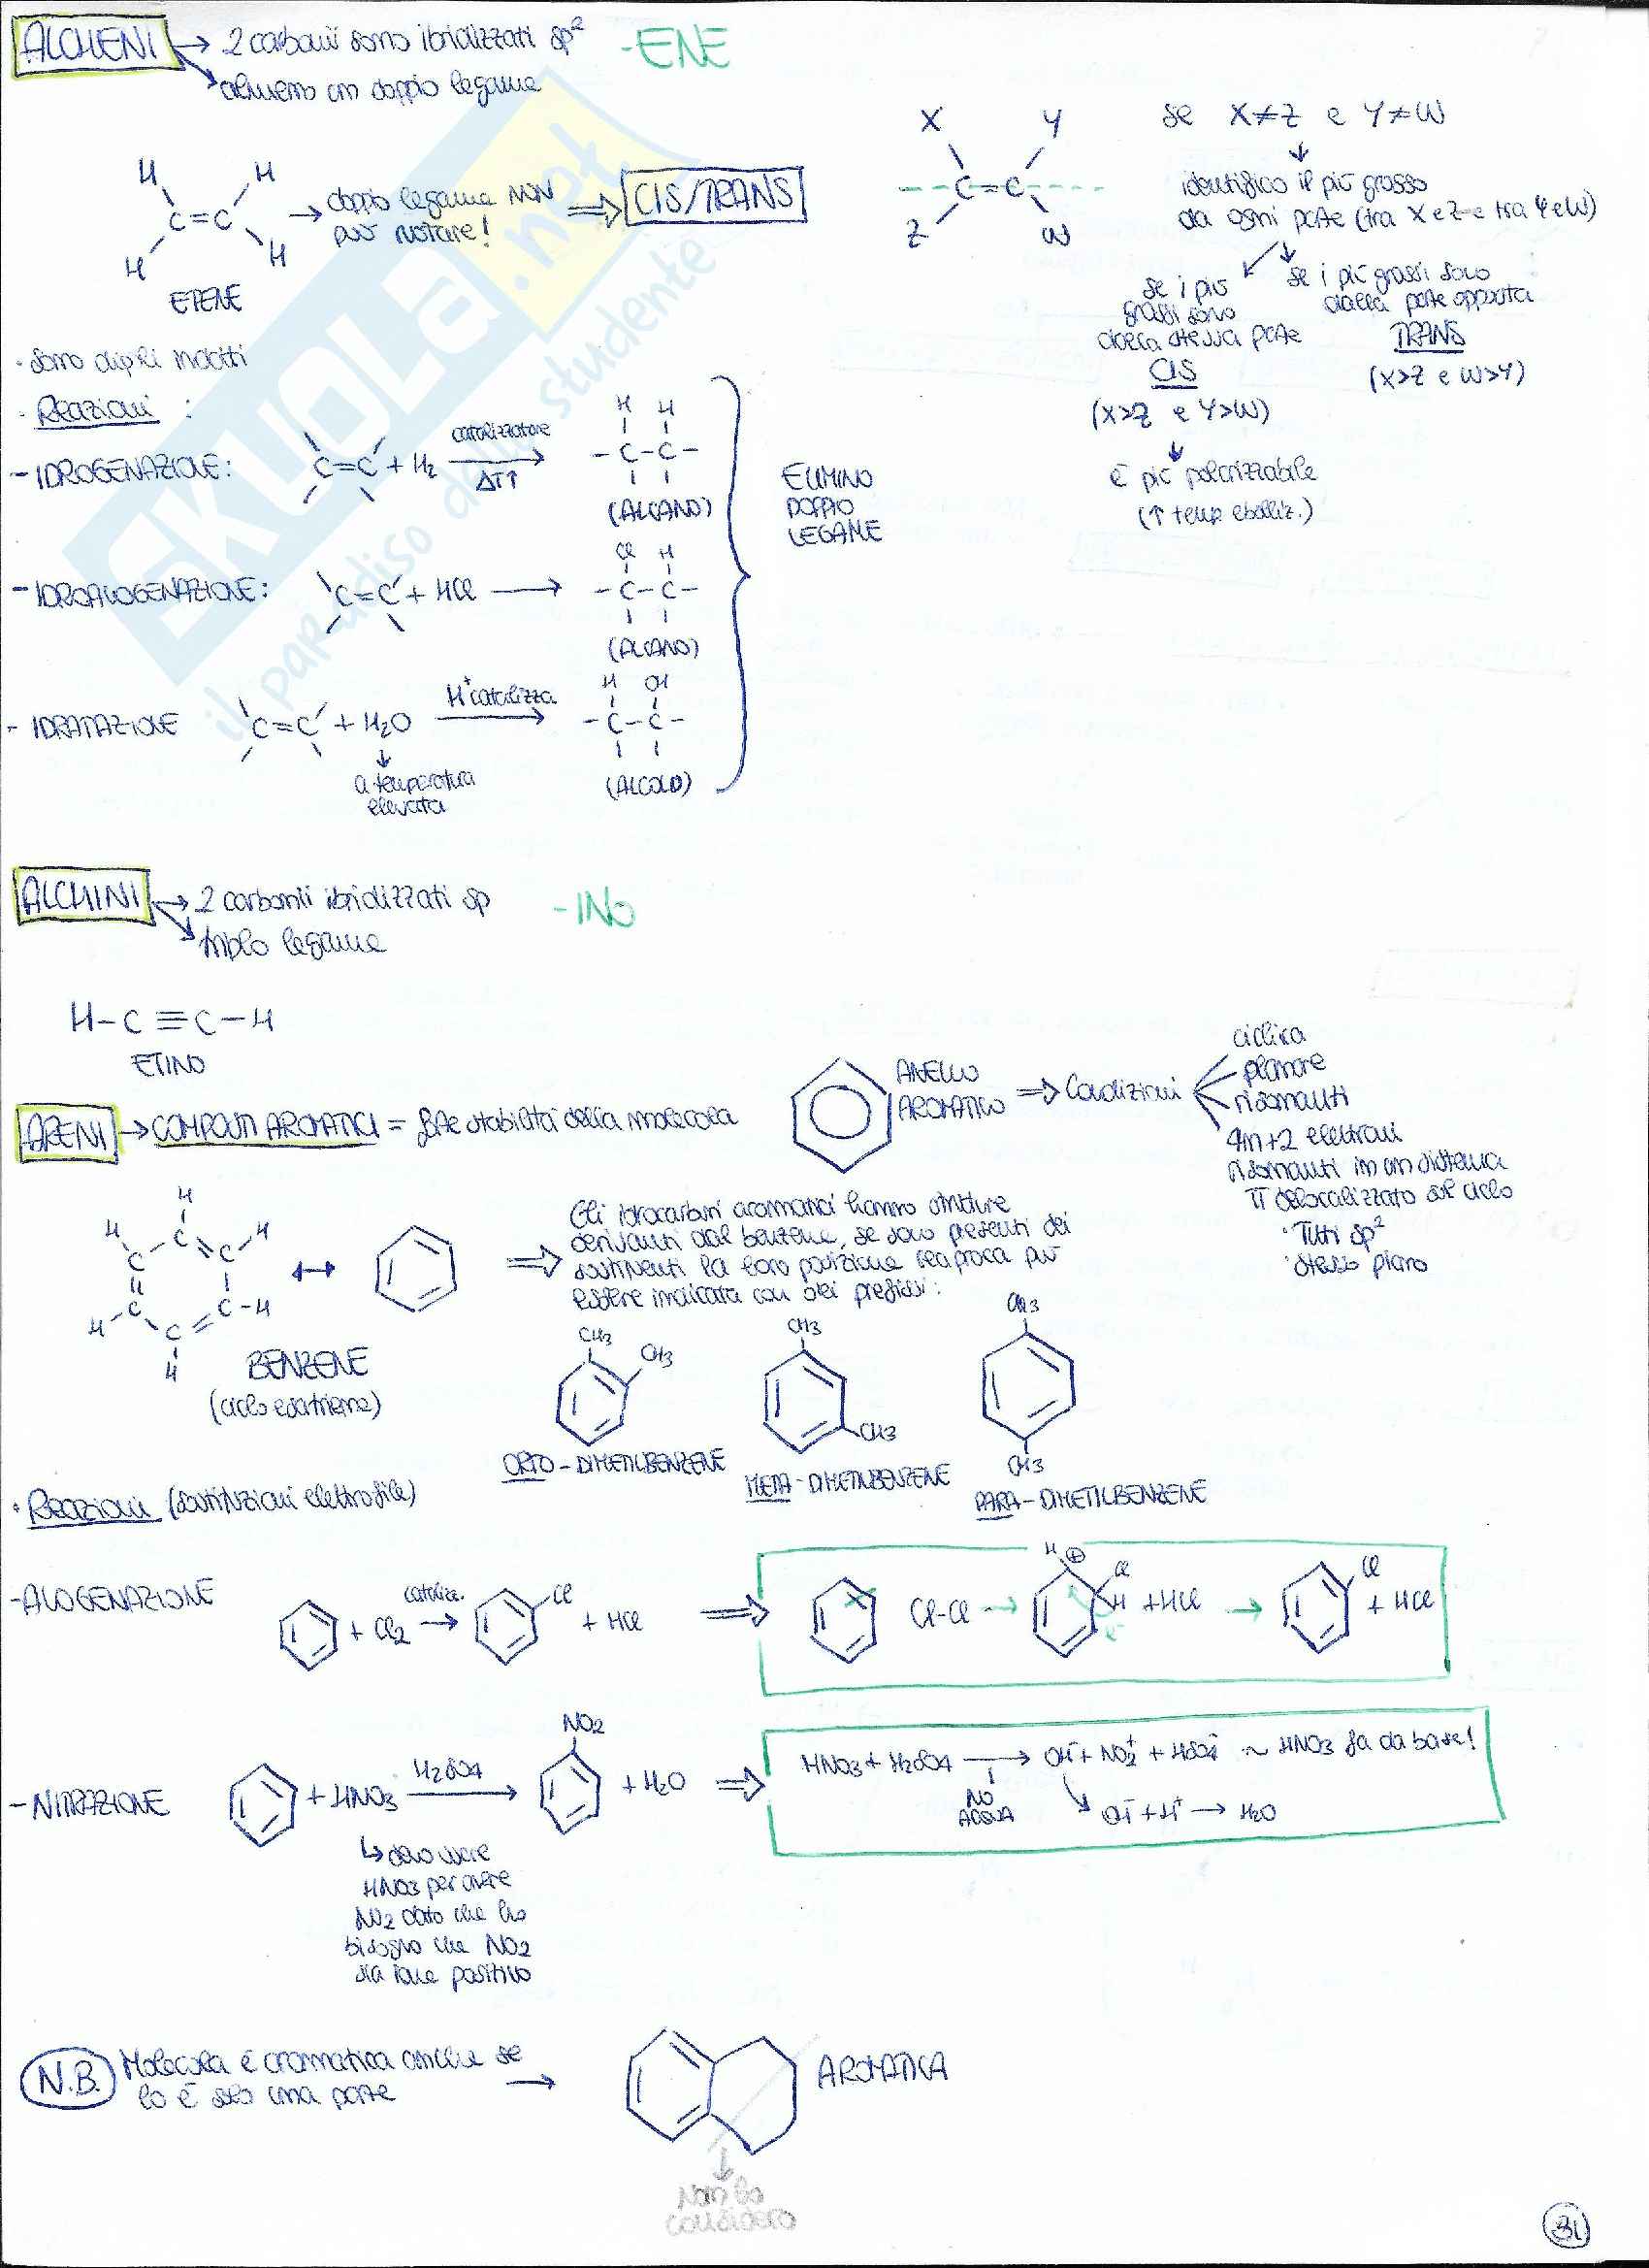 ALCHENI → 2 carboni sono ibridizzati sp² -ENE
almeno un doppio legame
H H
C=C → doppio legame NON ⇒ CIS/TRANS
può ruotare!
H H
ETENE
X Y
C=C
Z W
se X≠Z e Y≠W
identifico il più grosso
da ogni parte (tra X e Z e tra Y e W)
se i più
grossi sono
dalla stessa parte
CIS
(X>Z e Y>W)
è più polarizzabile
(↑ temp. ebolliz.)
se i più grossi sono
dalla parte opposta
TRANS
(X>Z e W>Y)
· sono
· Reazioni:
- IDROGENAZIONE: C=C + H₂ catalizzatore ΔT↑
H H
-C-C-
(ALCANO)
- IDROALOGENAZIONE: C=C + HCl →
Cl H
-C-C-
(ALCANO)
- IDRATAZIONE C=C + H₂O H⁺catalizza
a temperatura
elevata
H OH
-C-C-
(ALCOLO)
ELIMINO
DOPPIO
LEGAME
ALCHINI → 2 carbonii ibridizzati sp -INO
triplo legame
H-C≡C-H
ETINO
ARENI → COMPOSTI AROMATICI = stabilità della molecola
ANELLO
AROMATICO ⇒ Condizioni
ciclica
planare
risonanti
4n+2 elettroni
risonanti in un sistema
π delocalizzato sul ciclo
· Tutti sp²
· stesso piano
H
H C C H
C C-H
H-C C
H
BENZENE
(cicloesatriene)
Gli idrocarburi aromatici hanno strutture
derivanti dal benzene, se sono presenti dei
sostituenti la loro posizione reciproca può
essere indicata con dei prefissi:
CH3 CH3
ORTO-DIMETILBENZENE
CH3 CH3
META-DIMETILBENZENE
CH3 CH3
PARA-DIMETILBENZENE
· Reazioni (sostituzioni elettrofile)
- ALOGENAZIONE + Cl₂ cataliz. → Cl + HCl ⇒ Cl-Cl → H ⊕ Cl H e⁻ + HCl → Cl + HCl
- NITRAZIONE + HNO3 H₂SO4 → NO2 + H₂O ⇒
HNO3 + H₂SO4 → OH⁻ + NO2⁺ + HSO4⁻ ~ HNO3 fa da base!
NO
ACQUA
OH⁻ + H⁺ → H₂O
↳ devo usare
HNO3 per avere
NO2 dato che ho
bisogno che NO2
sia ione positivo
N.B. Molecola è aromatica anche se →
lo è solo una parte
AROMATICA
Non lo
considero
31
SKUOLA.net
il paradiso dello studente